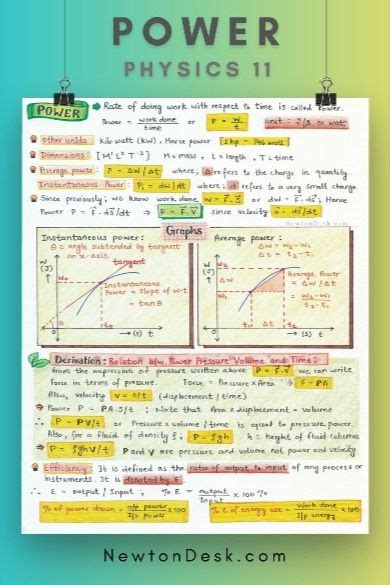 POWER
PHYSICS 11
POWER → Rate of doing work with respect to time is called Power.
Power = work done / time or P = W/t unit: J/s or watt
Other units: kilo watt (kW), Horse power 1 hp = 746 watt
Dimensions: [M¹L²T⁻³] M = mass, L = length, T = time
Average power: P = ΔW/Δt where, Δ refers to the change in quantity
Instantaneous Power: Pi = dw/dt where; d refers to a very small change
Since previously, we know work done W = F.S or dw = F.ds; Hence
Power P = F.ds/dt ⇒ P = F.V since velocity v = ds/dt
Graphs
Instantaneous power:
θ = angle subtended by tangent on x-axis.
W (J)
tangent
Wo
Instantaneous Power = slope of W-t = tanθ
θ
to
(s) t
Average power:
ΔW = W₂ - W₁
Δt = t₂ - t₁
W (J)
W₂
ΔW
W₁
Average Power = ΔW/Δt
= W₂-W₁ / t₂-t₁
t₁ Δt t₂
(s) t
Derivation: Relation b/w Power Pressure Volume and Time:
From the expression of pressure written above P = F.V we can write
Force in terms of pressure. Force = Pressure × Area ⇒ F = PA
Also, velocity v = s/t (displacement / time)
⇒ Power P = PA.s/t ; Note that Area × displacement = volume
∴ P = PV/t or Pressure × volume / time is equal to power.
Also, for a fluid of density ρ; P = ρgh h = height of fluid column
⇒ P = ρghV/t P and V are pressure and volume not power and velocity
Efficiency: It is defined as the ratio of output to input of any process or
instruments. It is denoted by ε.
∴ ε = output / Input ; % ε = output / Input × 100 %
% of power drawn = o/p power / I/p power × 100
% ε of energy use = Work done / I/p energy × 100
NewtonDesk.com